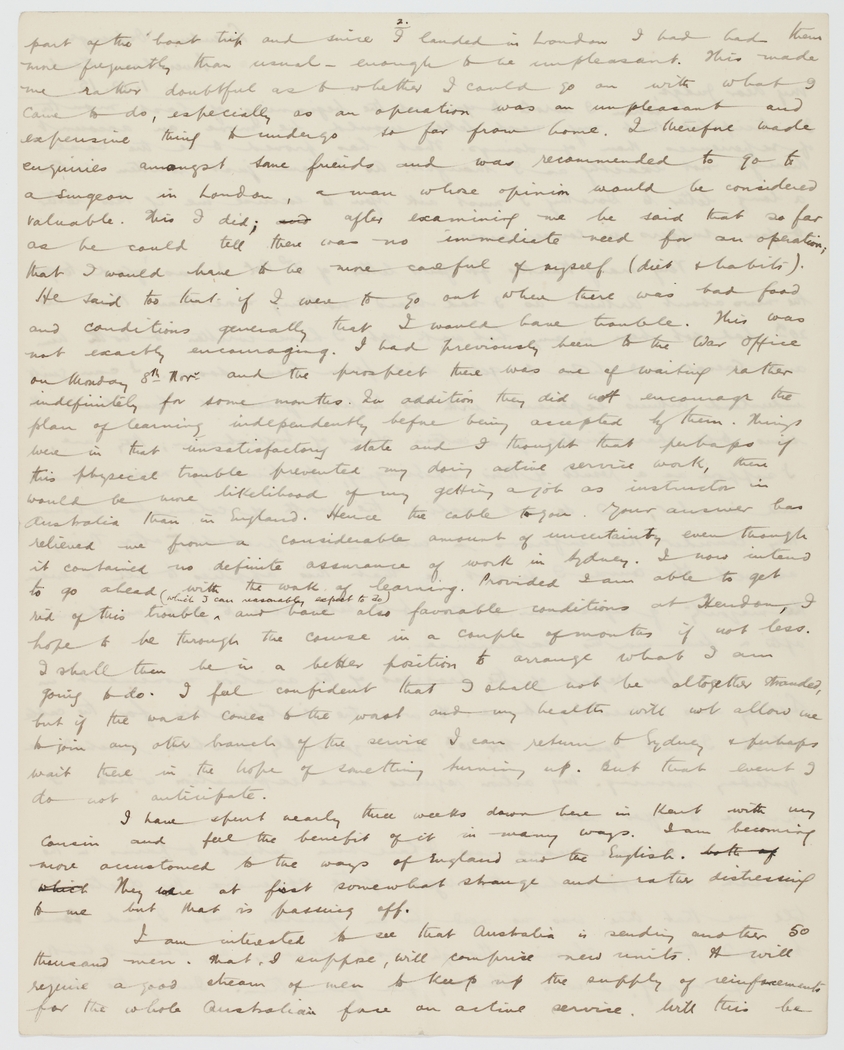 2.
part of the boat trip and since I landed in London I had had them
more frequently than usual – enough to be unpleasant. This made
me rather doubtful as to whether I could go on with what I
came to do, especially as an operation was an unpleasant and
expensive thing to undergo so far from home. I therefore made
enquiries amongst some friends and was recommended to go to
a surgeon in London, a man whose opinion would be considered
valuable. This I did; and after examining me he said that so far
as he could tell there was no immediate need for an operation;
that I would have to be more careful of myself (diet & habits).
He said too that if I were to go out where there was bad food
and conditions generally that I would have trouble. This was
not exactly encouraging. I had previously been to the War Office
on Monday 8th Novr. and the prospect there was one of waiting rather
indefinitely for some months. In addition they did not encourage the
plan of learning independently before being accepted by them. Things
were in that unsatisfactory state and I thought that perhaps if
this physical trouble prevented my doing active service work, there
would be more likelihood of my getting a job as instructor in
Australia than in England. Hence the cable to you. Your answer has
relieved me from a considerable amount of uncertainty even though
it contained no definite assurance of work in Sydney. I now intend
to go ahead with the work of learning. Provided I am able to get
(which I can reasonably expect to do)
rid of this trouble ^ and have also favorable conditions at Hendon, I
hope to be through the course in a couple of months if not less.
I shall then be in a better position to arrange what I am
going to do. I feel confident that I shall not be altogether stranded,
but if the worst comes to the worst and my health will not allow me
to join any other branch of the service I can return to Sydney & perhaps
wait there in the hope of something turning up. But that event I
do not anticipate.
I have spent nearly three weeks down here in Kent with my
cousin and feel the benefit of it in many ways. I am becoming
more accustomed to the ways of England and the English. both of
which They were at first somewhat strange and rather distressing
to me but that is passing off.
I am interested to see that Australia is sending another 50
thousand men. That, I suppose, will comprise new units. It will
require a good stream of men to keep up the supply of reinforcements
for the whole Australian force on active service. Will this be